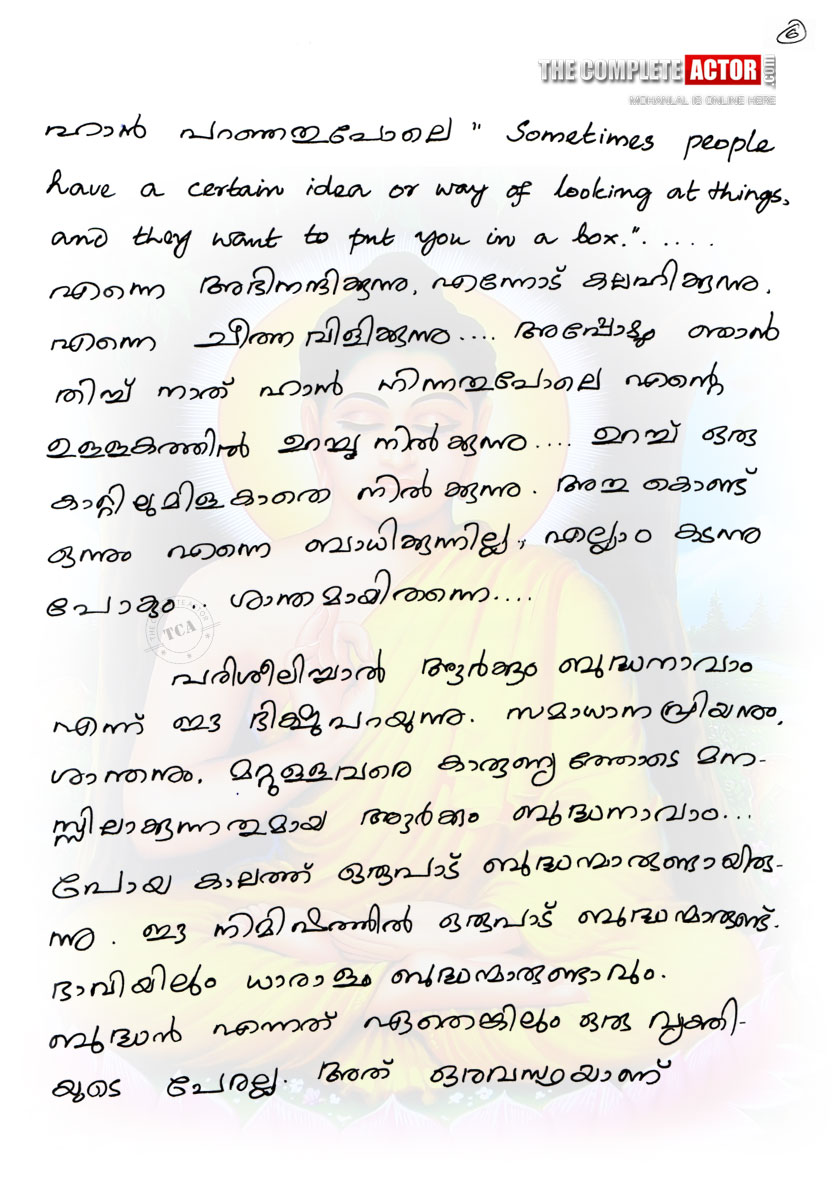 6
THE COMPLETE ACTOR .COM
MOHANLAL IS ONLINE HERE
ഹാൻ പറഞ്ഞതുപോലെ " Sometimes people
have a certain idea or way of looking at things,
and they want to put you in a box.".....
എന്നെ അഭിനന്ദിക്കുന്നു, എന്നോട് കലഹിക്കുന്നു,
എന്നെ ചീത്ത വിളിക്കുന്നു.... അപ്പോഴും ഞാൻ
തിച്ച് നാത് ഹാൻ നിന്നതുപോലെ എന്റെ
ഉള്ളകത്തിൽ ഉറച്ചു നിൽക്കുന്നു.... ഉറച്ച് ഒരു
കാറ്റിലുമിളകാതെ നിൽക്കുന്നു. അതു കൊണ്ട്
ഒന്നും എന്നെ ബാധിക്കുന്നില്ല, എല്ലാം കടന്നു
പോകും.. ശാന്തമായിതന്നെ....
TCA
പരിശീലിച്ചാൽ ആർക്കും ബുദ്ധനാവാം
എന്ന് ഈ ഭിക്ഷു പറയുന്നു. സമാധാന പ്രിയനും,
ശാന്തനും, മറ്റുള്ളവരെ കാരുണ്യത്തോടെ മന-
സ്സിലാക്കുന്നതുമായ ആർക്കും ബുദ്ധനാവാം...
പോയ കാലത്ത് ഒരുപാട് ബുദ്ധന്മാരുണ്ടായിരു-
ന്നു. ഈ നിമിഷത്തിൽ ഒരുപാട് ബുദ്ധന്മാരുണ്ട്.
ഭാവിയിലും ധാരാളം ബുദ്ധന്മാരുണ്ടാവും.
ബുദ്ധൻ എന്നത് ഏതെങ്കിലും ഒരു വ്യക്തി-
യുടെ പേരല്ല. അത് ഒരവസ്ഥയാണ്